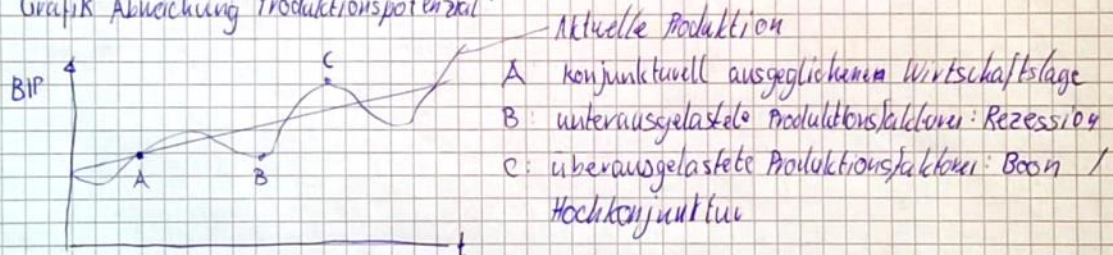 Grafik Abweichung Produktionspotenzial
Aktuelle Produktion
BIP
C
A
B
t
A konjunkturell ausgeglichenen Wirtschaftslage
B: unterausgelastete Produktionsfaktoren: Rezession
C: überausgelastete Produktionsfaktoren: Boon /
Hochkonjunktur